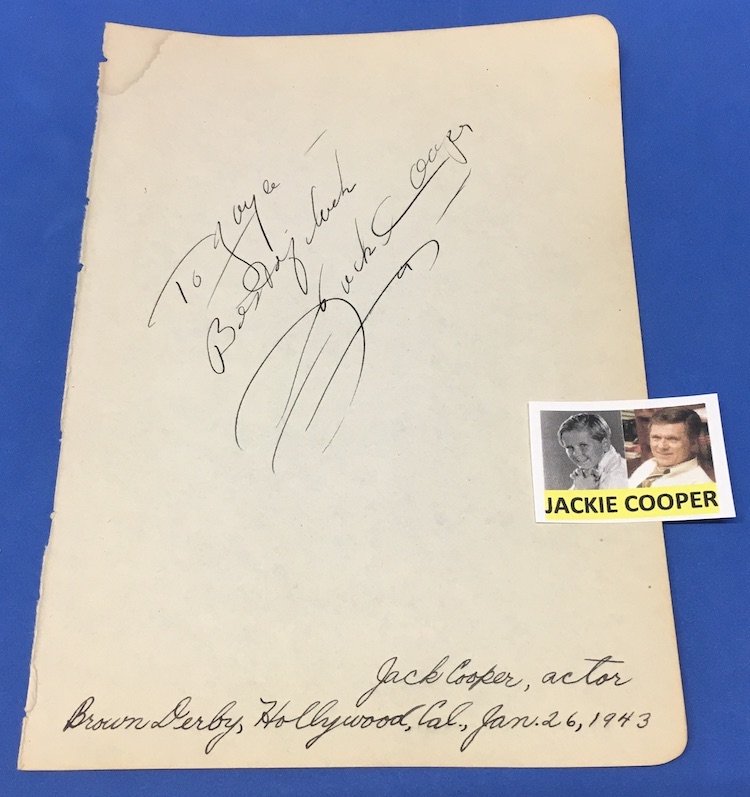 To Joyce
Best of luck
Jack Cooper
JACKIE COOPER
Jack Cooper, actor
Brown Derby, Hollywood, Cal., Jan. 26, 1943